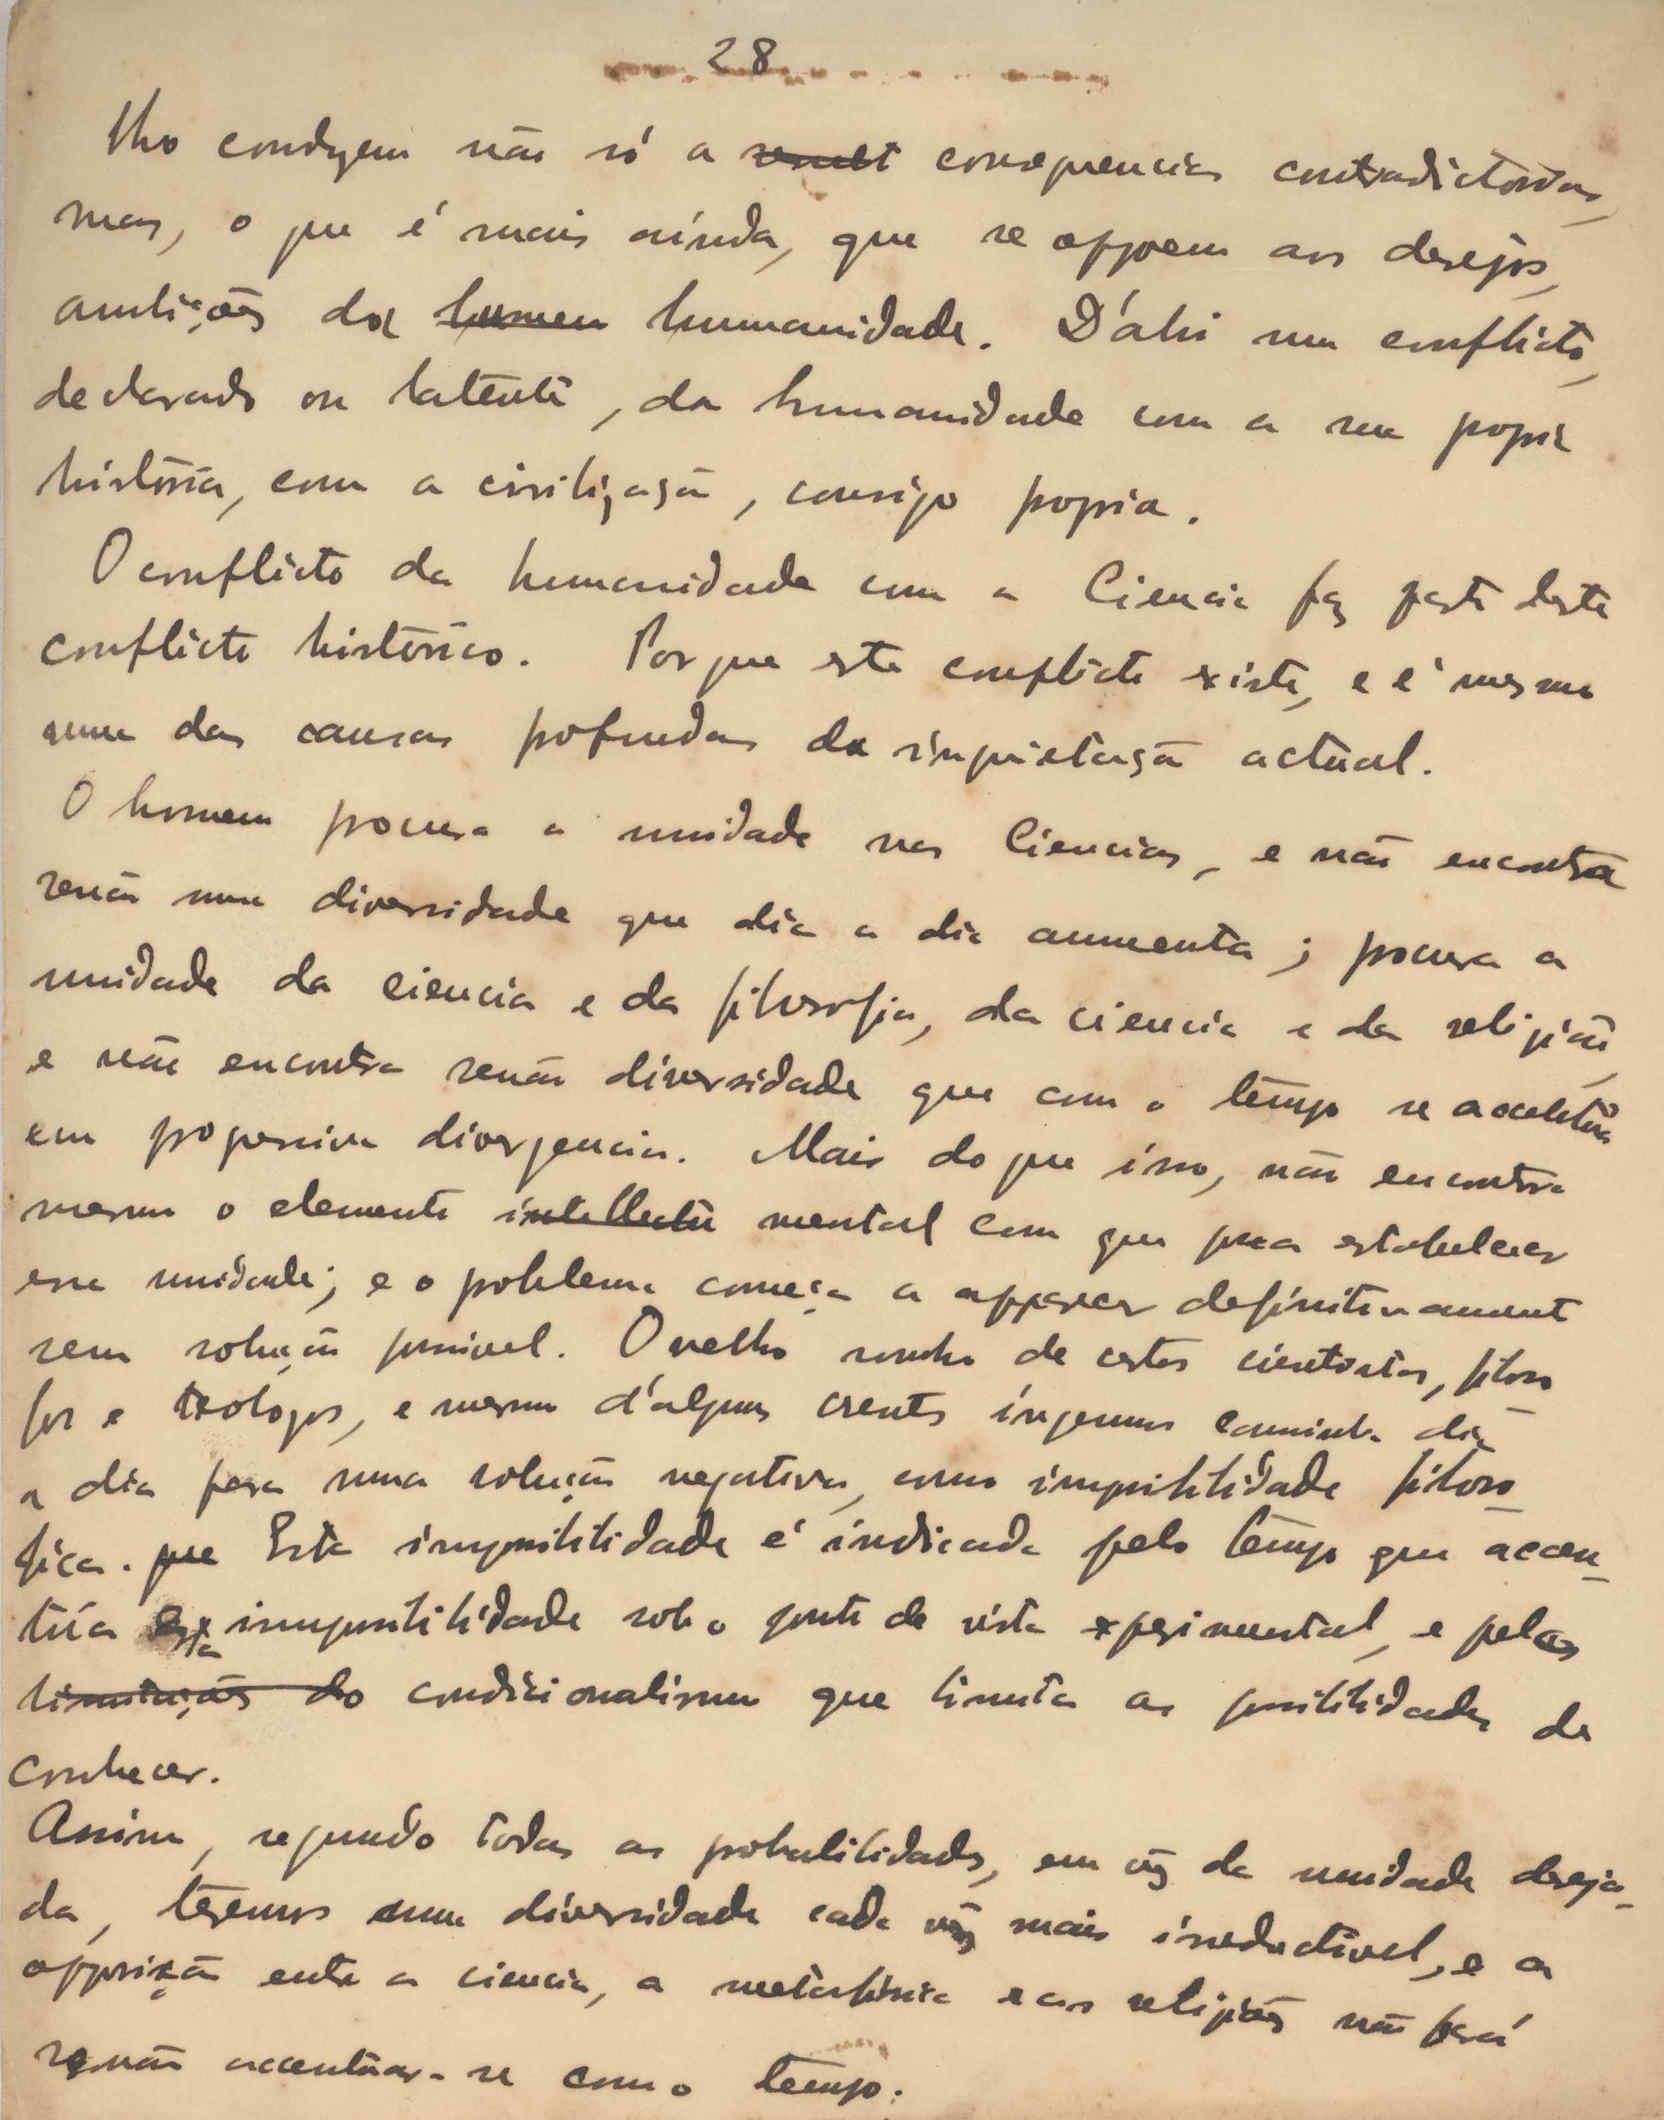 28
lho conduzem não só a result consequencias contradictorias,
mas, o que é mais ainda, que se oppoem aos desejos,
ambições da homem humanidade. D'ahi um conflicto,
declarado ou latente, da humanidade com a sua propria
história, com a civilização, consigo propria.
O conflicto da humanidade com a Ciencia faz parte deste
conflicto histórico. Porque este conflicto existe, e é mesmo
uma das causas profundas da inquietação actual.
O homem procura a unidade nas Ciencias, e não encontra
senão uma diversidade que dia a dia aumenta; procura a
unidade da ciencia e da filosofia, da ciencia e da religião,
e não encontra senão diversidade que com o tempo se accentua
em progressiva divergencia. Mais do que isso, não encontra
mesmo o elemento intellectu mental com que possa estabelecer
essa unidade; e o problema começa a apparecer definitivamente
sem solução possivel. O velho sonho de certos cientistas, filoso
fos e teologos, e mesmo d'alguns crentes ingenuos caminha dia
a dia para uma solução negativa, como impossibilidade filoso-
fica. que Esta impossibilidade é indicada pelo tempo que accen-
túa esta impossibilidade sob o ponto de vista experimental, e pelas
limitações do condicionalismo que limita as possibilidades de
conhecer.
Assim, segundo todas as probabilidades, em vez da unidade deseja-
da, teremos uma diversidade cada vez mais irreductivel, e a
opposição entre a ciencia, a metafisica e as religiões não fará
senão accentuar-se com o tempo.